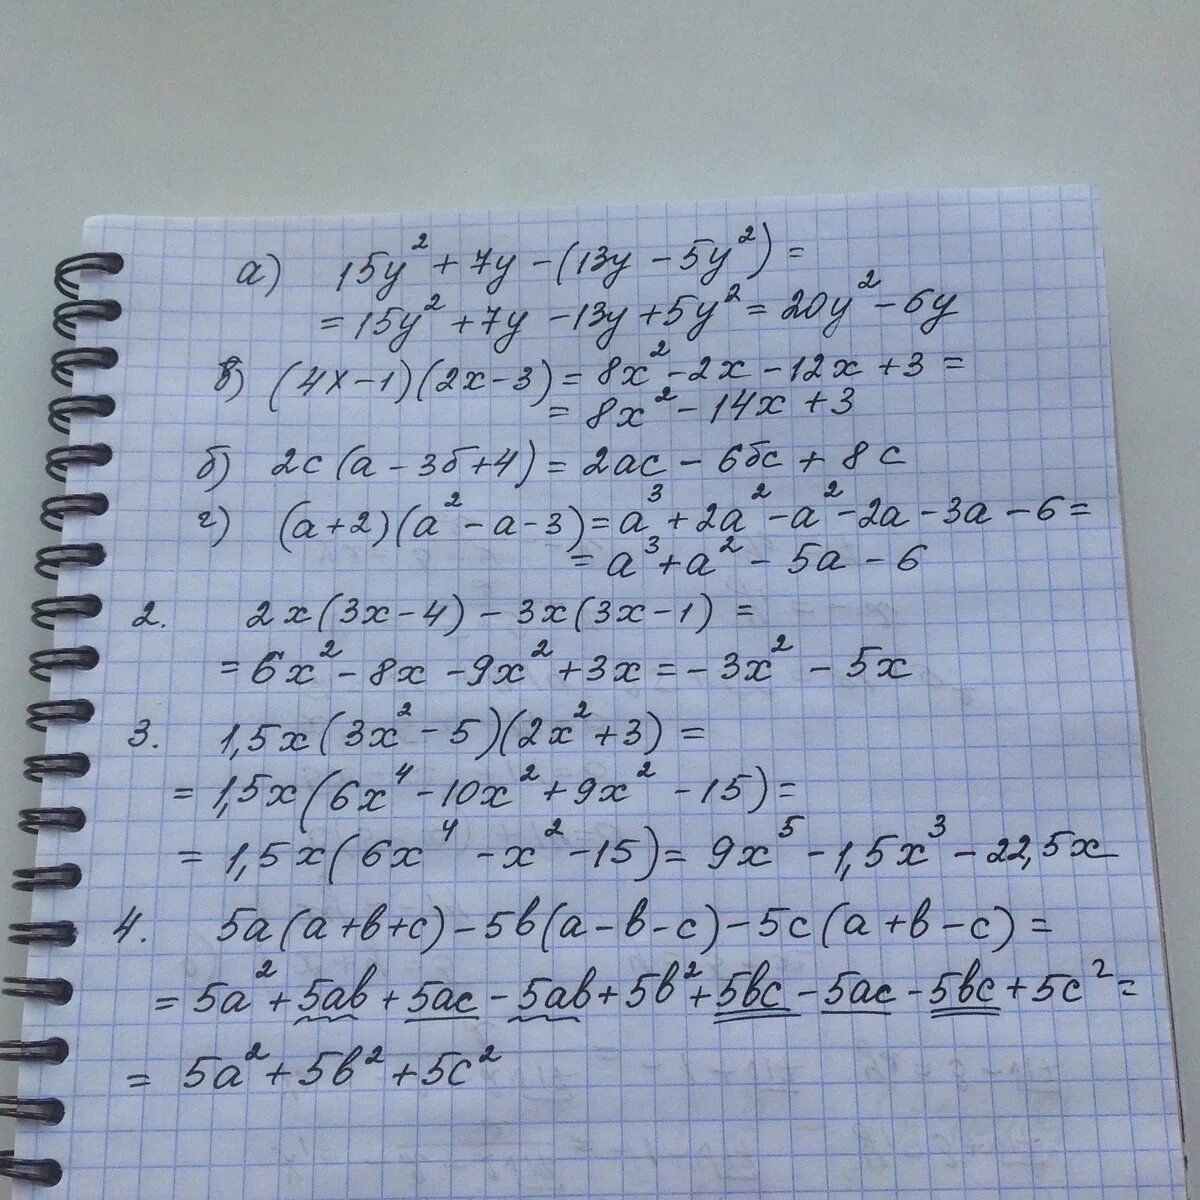 а) 15y² + 7y - (13y - 5y²) =
= 15y² + 7y - 13y + 5y² = 20y² - 6y
в) (4x - 1)(2x - 3) = 8x² - 2x - 12x + 3 =
= 8x² - 14x + 3
б) 2c(a - 3б + 4) = 2ac - 6бc + 8c
г) (a + 2)(a² - a - 3) = a³ + 2a² - a² - 2a - 3a - 6 =
= a³ + a² - 5a - 6
2. 2x(3x - 4) - 3x(3x - 1) =
= 6x² - 8x - 9x² + 3x = -3x² - 5x
3. 1,5x(3x² - 5)(2x² + 3) =
= 1,5x(6x⁴ - 10x² + 9x² - 15) =
= 1,5x(6x⁴ - x² - 15) = 9x⁵ - 1,5x³ - 22,5x
4. 5a(a + b + c) - 5b(a - b - c) - 5c(a + b - c) =
= 5a² + 5ab + 5ac - 5ab + 5b² + 5bc - 5ac - 5bc + 5c² =
= 5a² + 5b² + 5c²